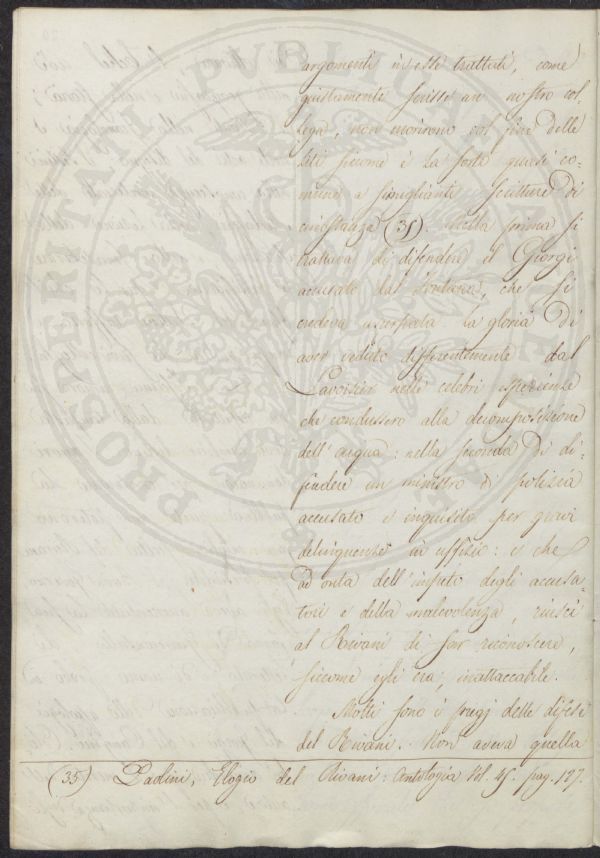 argomenti in esse trattati, come
giustamente scrisse un nostro col-
lega, non morirono col fine delle
liti siccome è la sorte quasi co-
mune a simiglianti scritture di
circostanza (35). Nella prima si
trattava di difendere il Giorgi
accusato dal Fontana, che si
credeva usurpata la gloria di
aver veduto differentemente dal
Lavoisier nelle celebri esperienze
che condussero alla decomposizione
dell'acqua: nella seconda di di-
fendere un ministro di polizia
accusato e inquisito per gravi
delinquenze in uffizio: e che
ad onta dell'impeto degli accusa-
tori e della malevolenza, riuscì
al Rivani di far riconoscere,
siccome egli era, inattaccabile.
Molti sono i pregj delle difese
del Rivani. Non aveva quella
(35) Paolini, Elogio del Rivani: Antologia Vol. 45. pag. 127.
PROSPERITATI PUBLICAE